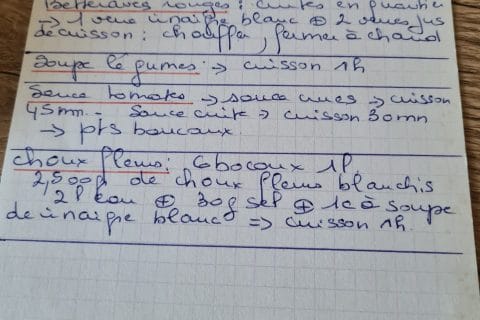 Betteraves rouges : cuites en quartier
→ 1 verre vinaigre blanc ⊕ 2 verres jus
de cuisson : chauffer, fermer à chaud
Soupe légumes : → cuisson 1h
Sauce tomates → sauce crues → cuisson
45mn - Sauce cuite → cuisson 30mn
→ pts bocaux
Choux fleurs : 6 bocaux 1l
2,500g de choux fleurs blanchis
2l eau ⊕ 30g sel ⊕ 1c à soupe
de vinaigre blanc ⇒ cuisson 1h.